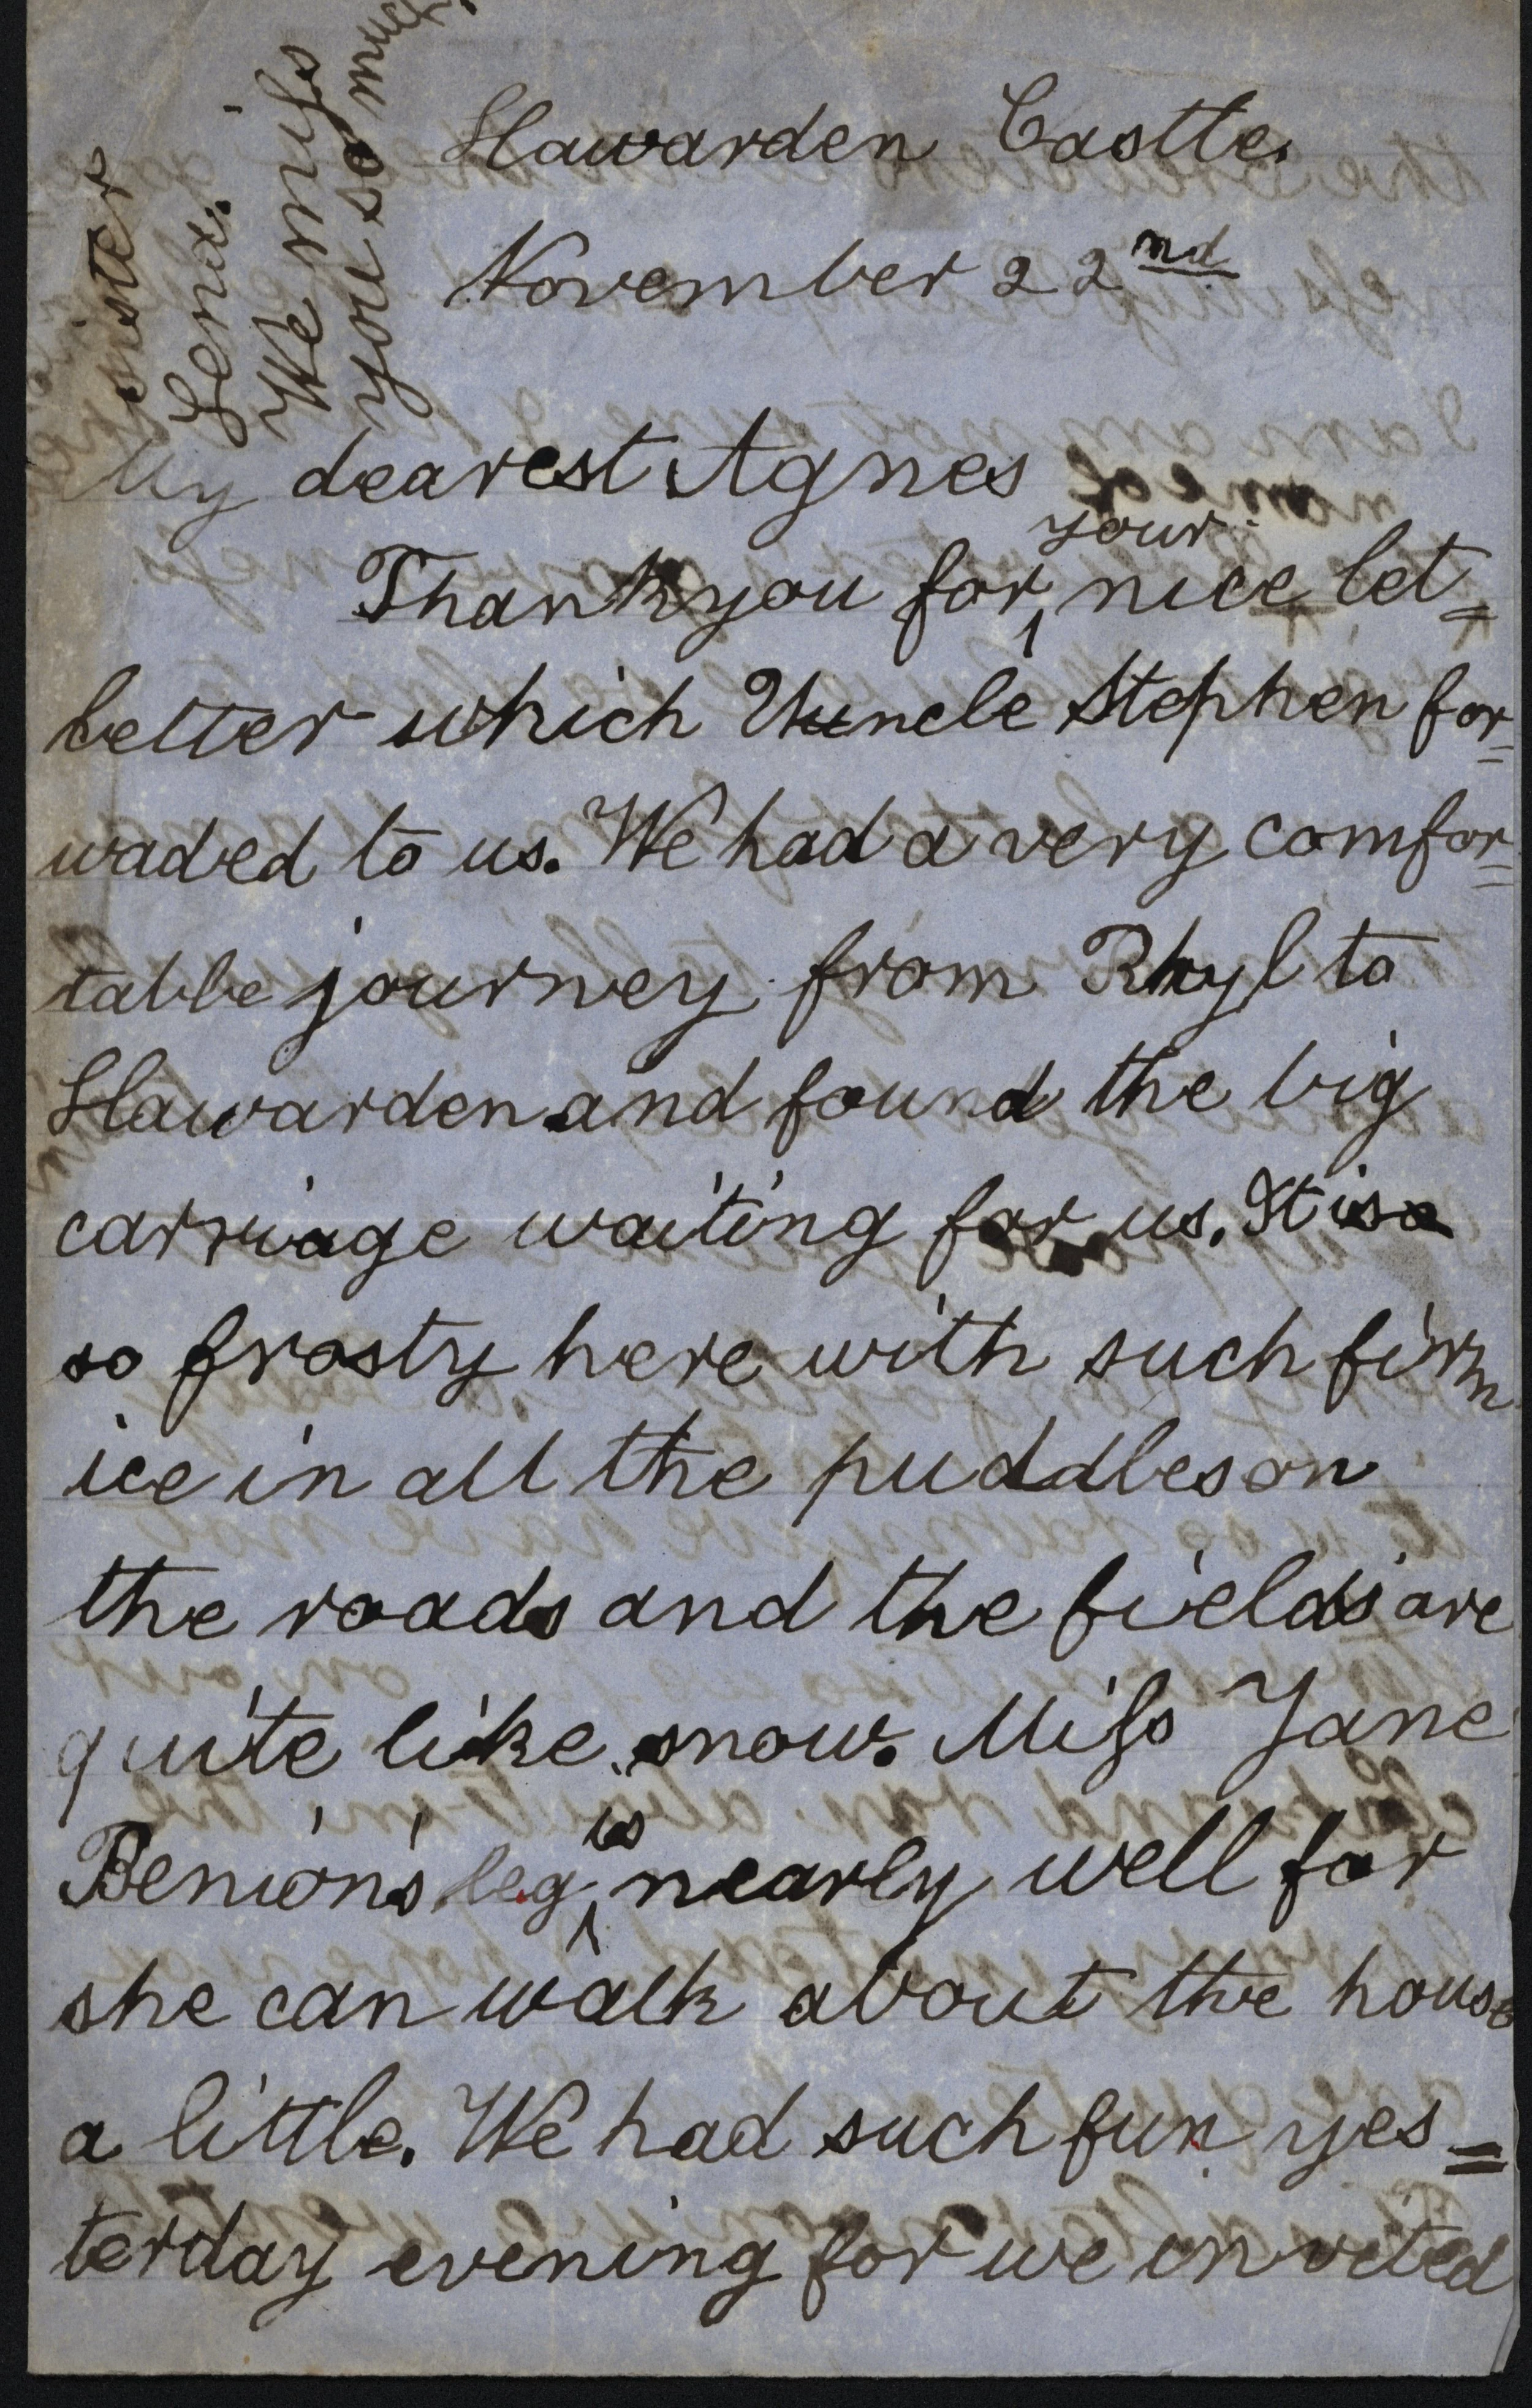 Hawarden Castle.
November 22nd
My dearest Agnes
your
Thank you for nice let=
better which Uncle Stephen for=
waded to us. We had a very comfor=
table journey from Rhyl to
Hawarden and found the big
carriage waiting for us. It is
so frosty here with such firm
ice in all the puddles on
the roads and the fields are
quite like snow. Miss Jane
is
Benion's leg nearly well for
she can walk about the house
a little. We had such fun yes=
terday evening for we invited
sister
Lena.
We miss
you so much